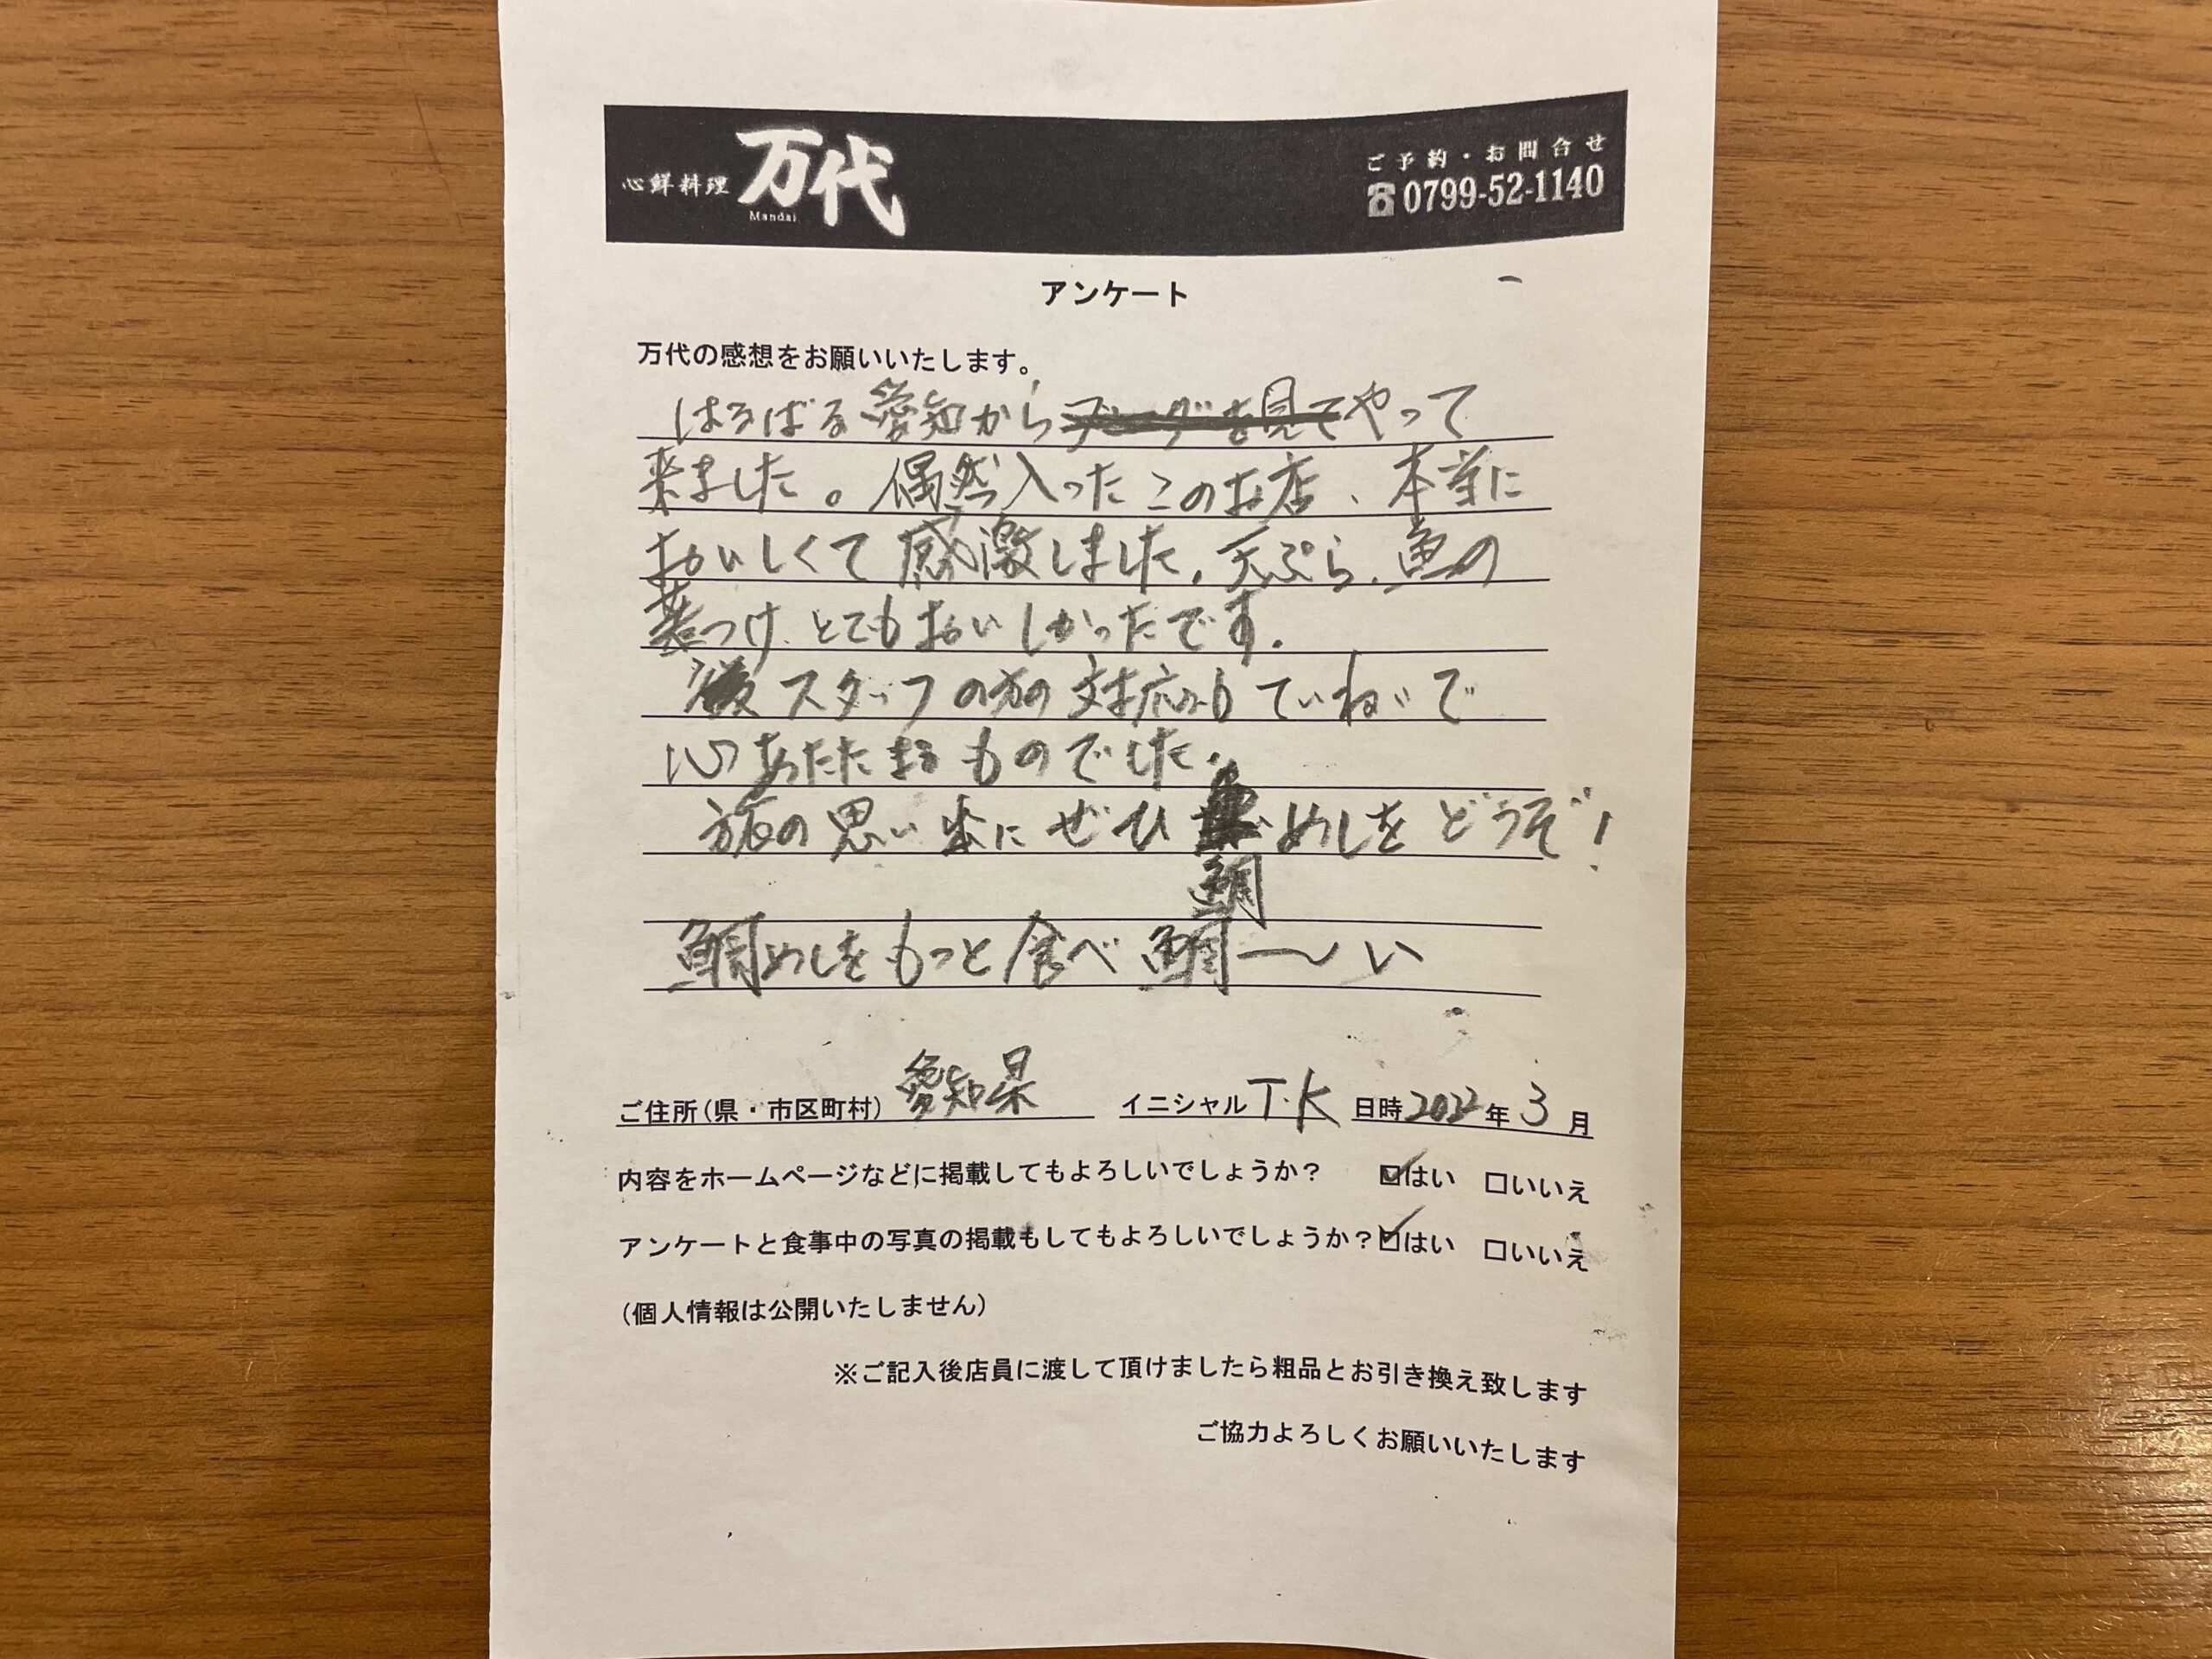 心鮮料理 万代
Mandai
ご予約・お問合せ
☎0799-52-1140
アンケート
万代の感想をお願いいたします。
はるばる愛知からブログを見てやって
来ました。偶然入ったこのお店、本当に
おいしくて感激しました。天ぷら、魚の
煮つけ、とてもおいしかったです。
スタッフの方の対応もていねいで
心あたたまるものでした。
旅の思い出にぜひ鯛めしをどうぞ!
鯛めしをもっと食べ鯛〜い
ご住所(県・市区町村) 愛知県 イニシャル T.K 日時 2022年 3 月
内容をホームページなどに掲載してもよろしいでしょうか? ☑はい □いいえ
アンケートと食事中の写真の掲載もしてもよろしいでしょうか?☑はい □いいえ
(個人情報は公開いたしません)
※ご記入後店員に渡して頂けましたら粗品とお引き換え致します
ご協力よろしくお願いいたします